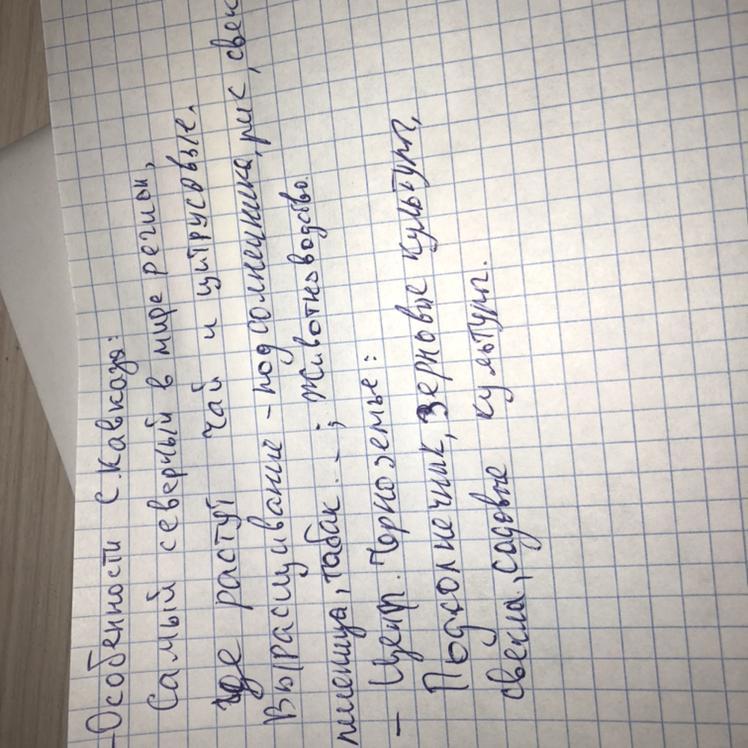 - Особенности С. Кавказа:
Самый северный в мире регион,
где растут чай и цитрусовые.
Выращивание - подсолнечника, рис, свек
пшеница, табак...; Животноводство.
- Центр. Черноземье:
Подсолнечник, зерновые культуры,
свекла, садовые культуры.